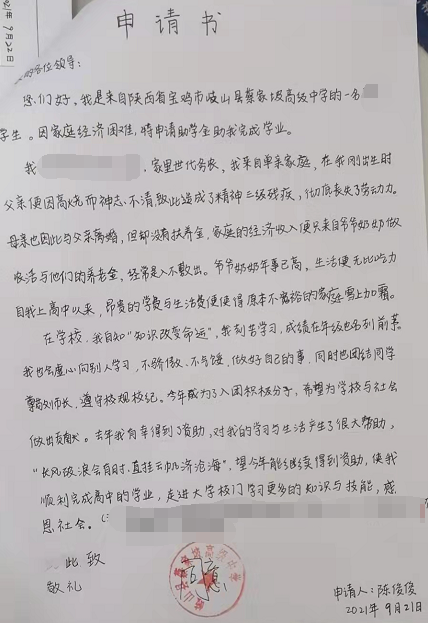 申请书
各位领导：
您们好，我是来自陕西省宝鸡市岐山县蔡家坡高级中学的一名
学生。因家庭经济困难，特申请助学金助我完成学业。
我
，家里世代务农，我来自单亲家庭，在我刚出生时
父亲便因高烧而神志不清，致此造成了精神三级残疾，彻底丧失了劳动力。
母亲也因此与父亲离婚，但却没有扶养金，家庭的经济收入便只来自爷爷奶奶做
农活与他们的养老金，经常是入不敷出。爷爷奶奶年事已高，生活便无比吃力
自我上高中以来，昂贵的学费与生活费便使得原本不富裕的家庭雪上加霜。
在学校，我自知“知识改变命运”，我刻苦学习，成绩在年级也名列前茅
我也会虚心向别人学习，不骄傲、不气馁，做好自己的事，同时也团结同学
尊敬师长，遵守校规校纪。今年成为了入团积极分子，希望为学校与社会
做出贡献。去年我有幸得到了资助，对我的学习与生活产生了很大帮助，
“长风破浪会有时，直挂云帆济沧海”，望今年能继续得到资助，使我
顺利完成高中的学业，走进大学校门学习更多的知识与技能，感
恩社会。
此致
敬礼
申请人：陈俊俊
2021年9月21日
9月22日